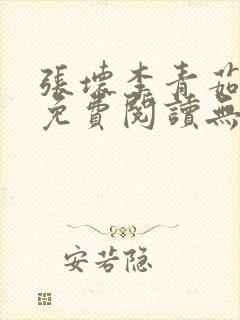 張懷李青茹
免費閱讀無
安若隐